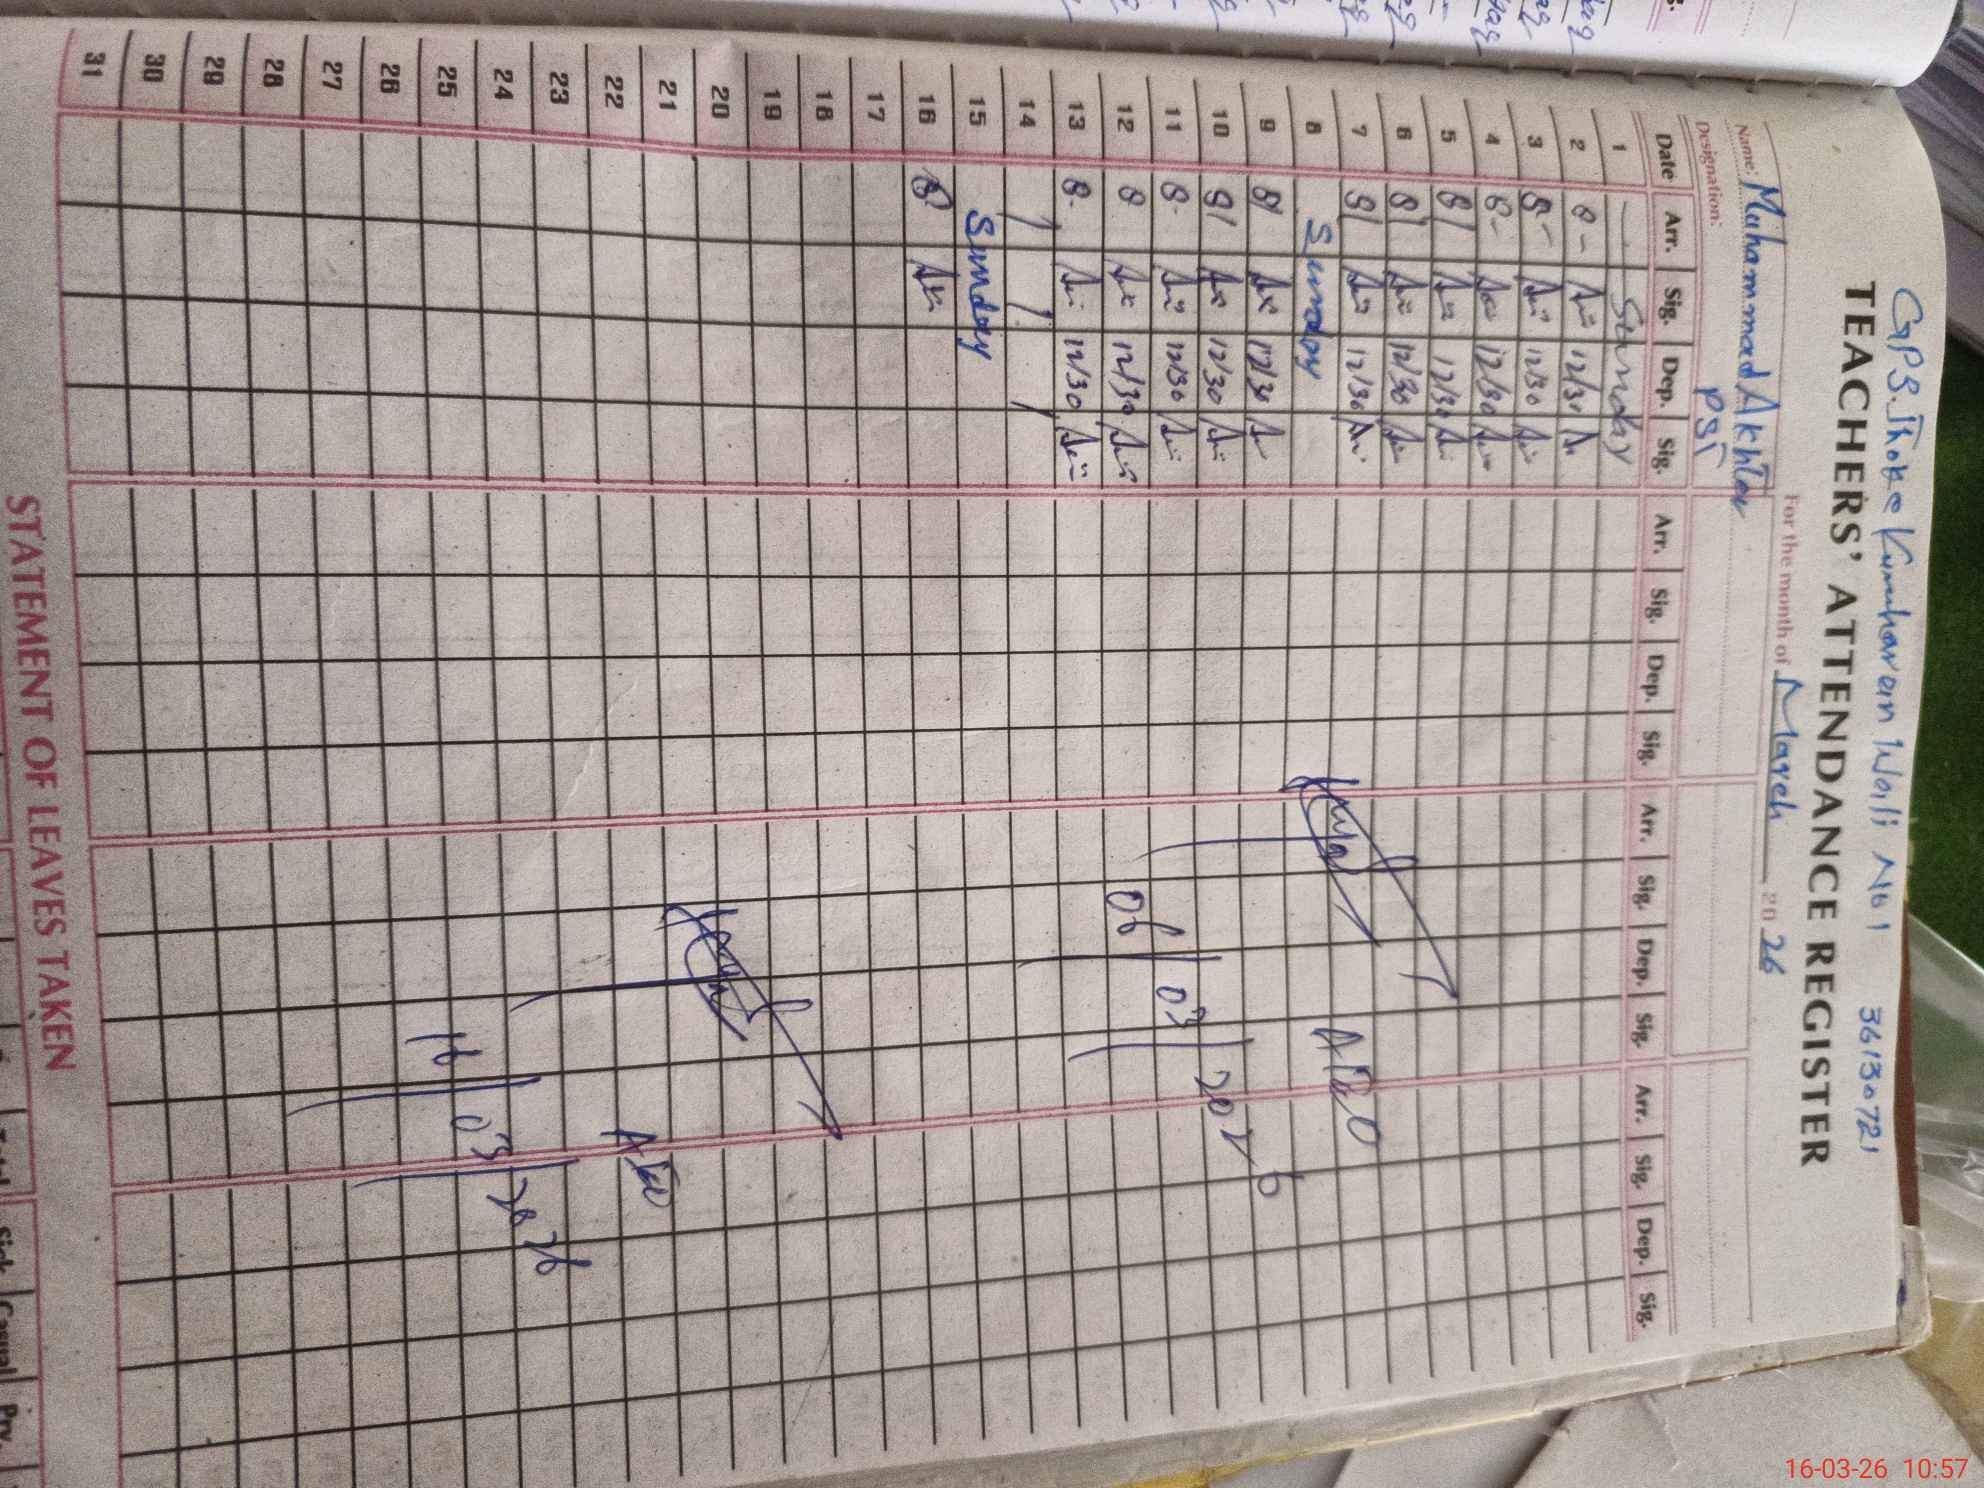 GPS Jhoke Kumharan Wali No 1 36130721
TEACHERS' ATTENDANCE REGISTER
For the month of March 2026
Name: Muhammad Akhtar
Designation: PST
Date Arr. Sig. Dep. Sig. Arr. Sig. Dep. Sig. Arr. Sig. Dep. Sig. Arr. Sig. Dep. Sig.
1 Sunday
2 8- 12/30
3 8- 12/30
4 8- 12/30
5 8/ 12/30
6 8/ 12/30
7 8/ 12/30
8 Sunday
9 8/ 12/30
10 8/ 12/30
11 8- 12/30
12 8 12/30
13 8- 12/30
14
15 Sunday
16 8
17
18
19
20
21
22
23
24
25
26
27
28
29
30
31
AEO
06/03/2026
AEO
16/03/2026
STATEMENT OF LEAVES TAKEN
Sick Casual Prv.
16-03-26 10:57